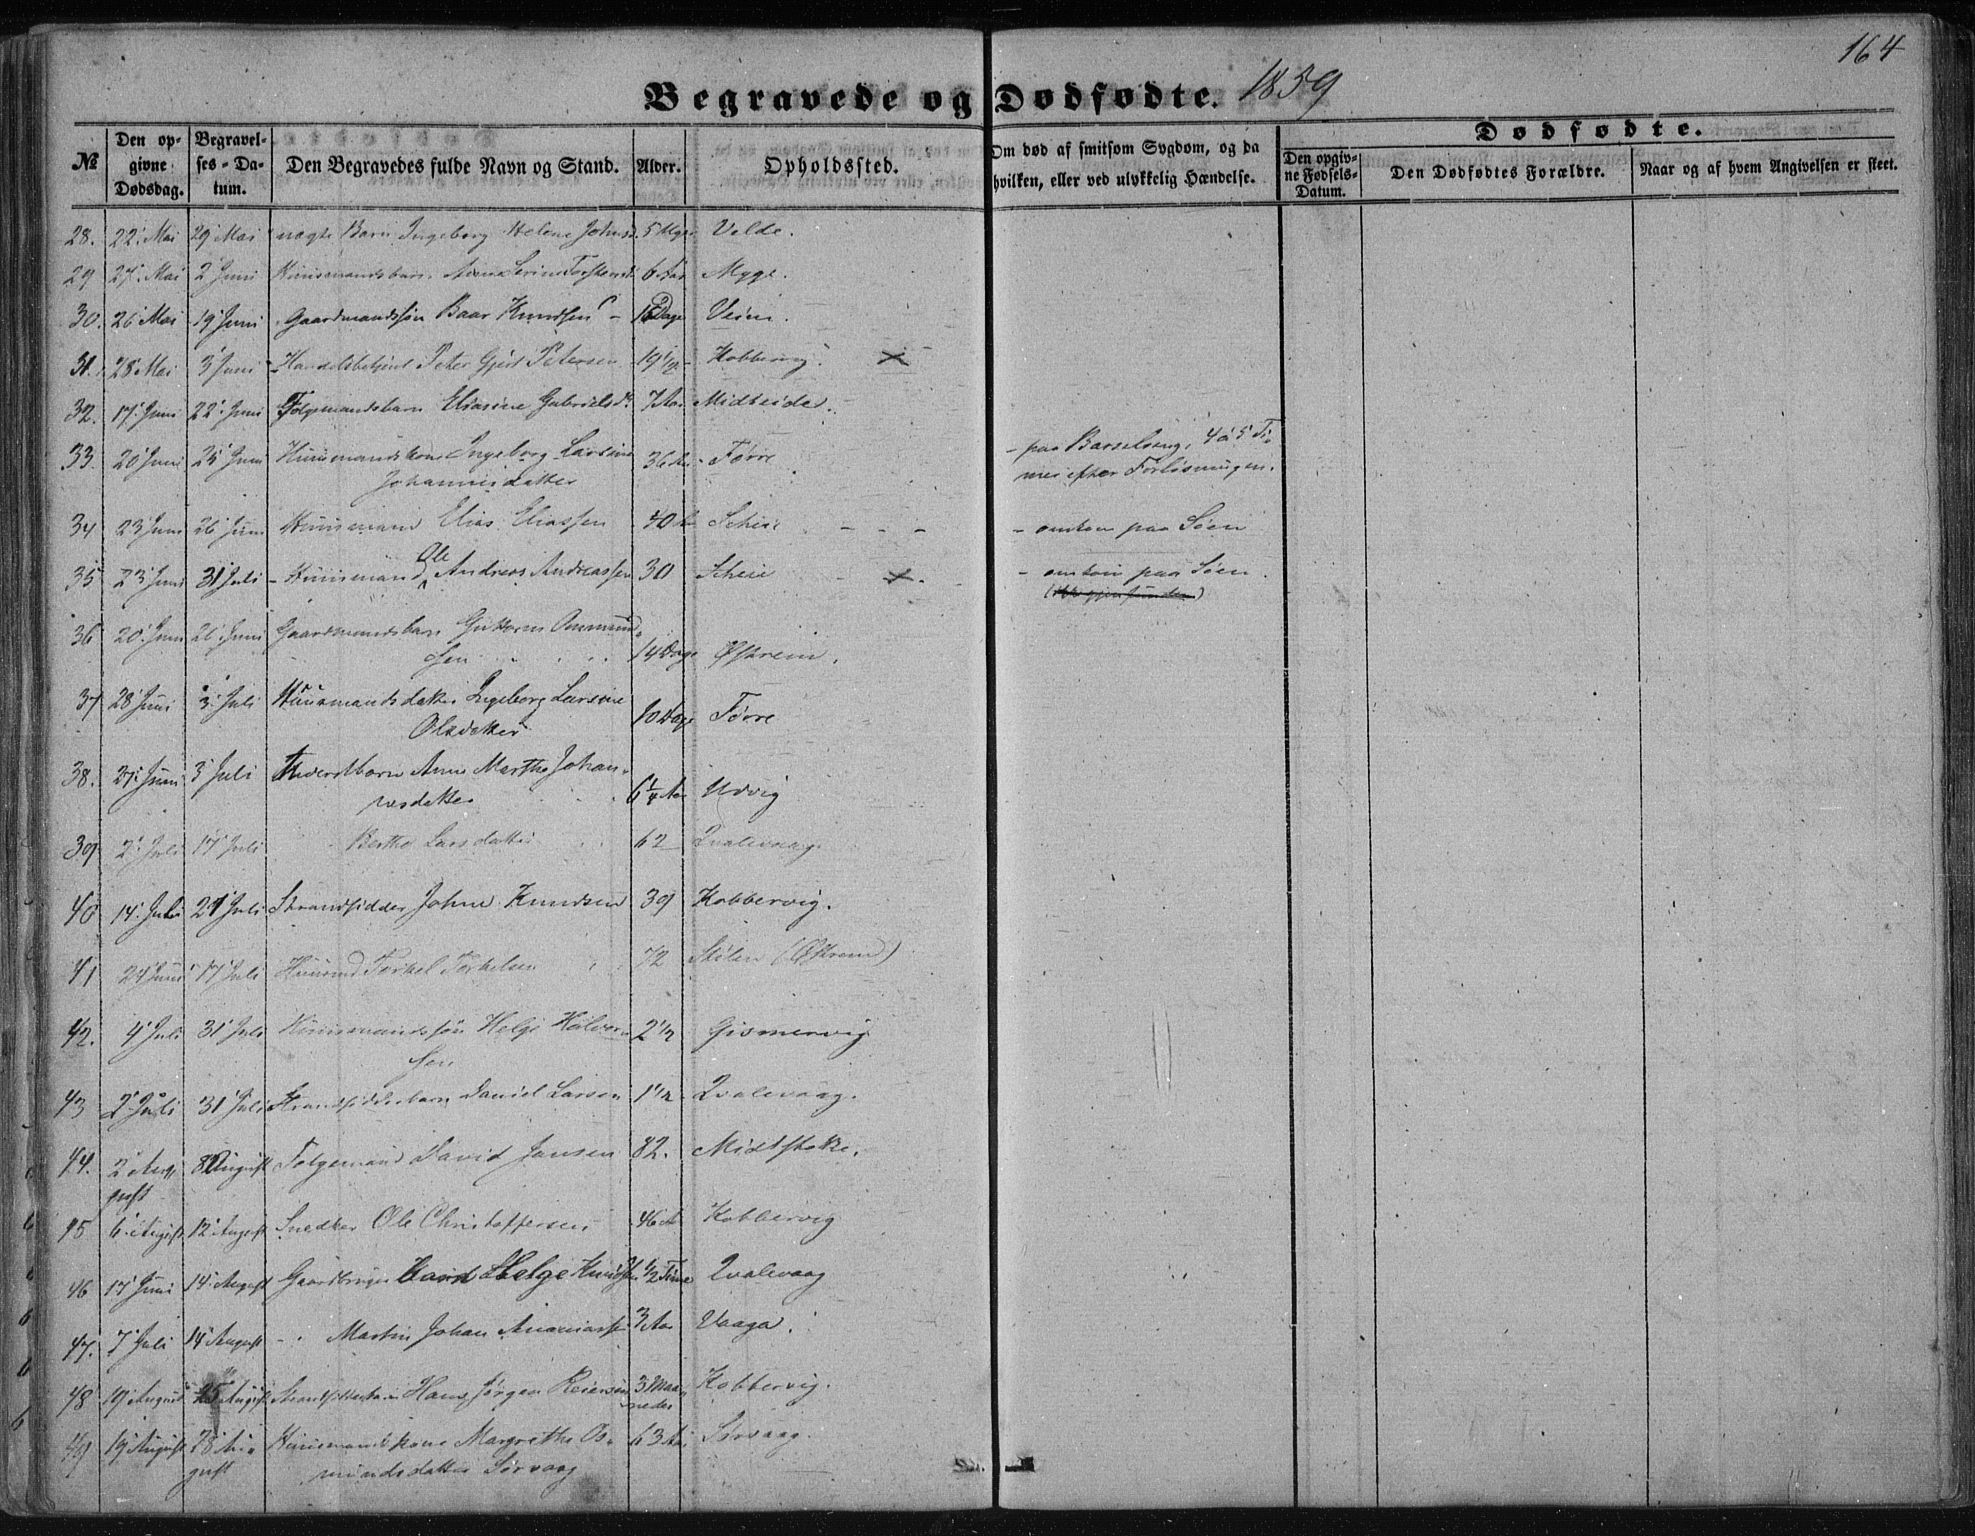 164
Begravede og Dødfødte. 1859
Dødfødte.
№
Den opgivne Dødsdag.
Begravelses-Datum.
Den Begravedes fulde Navn og Stand.
Alder.
Opholdssted.
Om død af smitsom Sygdom, og da hvilken, eller ved ulykkelig Hændelse.
Den opgivne Fødsels-Datum.
Den Dødfødtes Forældre.
Naar og af hvem Angivelsen er skeet.
28. 22 Mai 29 Mai uægte Barn Ingeborg Helene Johnsd. Velde.
29 27 Mai 2 Juni Huusmandsbarn Anna Serine 6 Aar Myge.
30. 26 Mai 19 Juni Gaardmandssøn Baar Knudsen Dage
31. 28 Mai 3 Juni Handelsbetjent Peter Gjert Petersen 19 1/2 Kobbervig ×
32. 17 Juni 22 Juni Folgemandsbarn Eliasine Gabrielsd. 7 Aar Midteide.
33. 20 Juni 25 Juni Huusmandskone Ingeborg Larsine 36 Aar Førre - paa Barselseng, 4 à 5 Ti-
Johannisdatter mer efter Forløsningen.
34 23 Juni 26 Juni Huusmand Elias Eliassen 40 Aar Scheie - - - - omkom paa Søen
Ole
35 23 Juni 31 Juli - Huusmand Andreas Andreassen 30 Scheie - × - omkom paa Søen.
36 20 Juni 26 Juni Gaardmandsbarn Guttorm Ommund-
sen 14 Dage Østrem.
37 28 Juni 3 Juli Huusmandsdatter Ingeborg Larsine
Olsdatter 10 Dage Førre
38. 27 Juni 3 Juli Anne Marthe Johan-
nesdatter 6 1/4 Aar Udvig
39 2 Juli 17 Juli Berthe Larsdatter 62 Qvalevaag
40 14 Juli 24 Juli Strandsidder John Knudsen 39 Kobbervig.
41 24 Juni 17 Juli Huusmd Torkel Torkelsen 72 (Østrem)
42. 4 Juli 31 Juli Huusmandssøn Helge Halvor-
sen 2 1/2 Gismervig
43 2 Juli 31 Juli Strandsidderbarn Daniel Larsen 1 1/2 Qvalevaag.
44. 2 Au- 8 August Folgemand David Jansen 82. Midtstokke.
gust
45 6 August 12 August Snedker Ole Christoffersen 46 A Kobbervig
46 17 Juni 14 August Gaardbruger Helge Knudsen 1/2 Time Qvalevaag
47. 7 Juli 14 August - Martin Johan Ananiassen 3 Aar Vaaga.
48 19 August 25 August Strandsidderbarn Hans Jørgen Reiersen 3 Maa- Kobbervig.
neder
49 19 August 28 Au- Huusmandskone Margrethe Os- 63 Aar Sørvaag.
gust mundsdatter Sørvaag